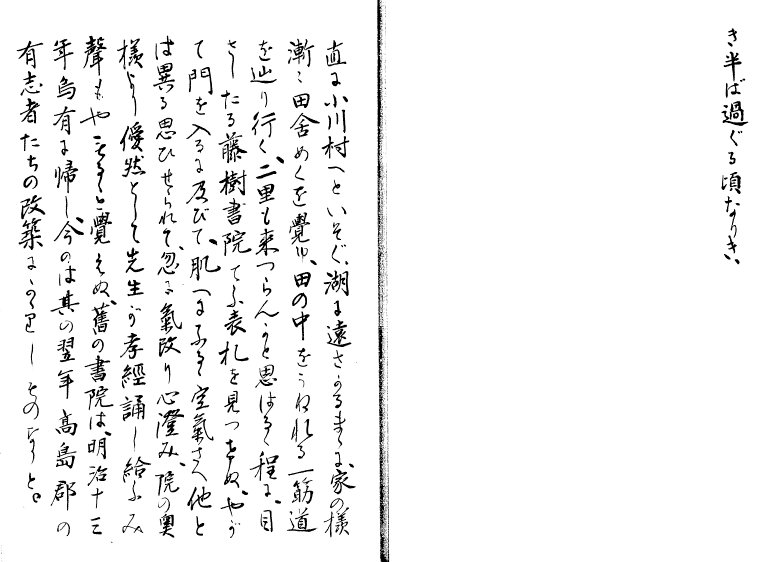 き半ば過ぐる頃なりき、
直に小川村へといそぐ、湖に遠ざかるまゝに、家の様
漸く田舎めくを覺ゆ、田の中をうねれる一筋道
を辿り行く、二里も來つらんかと思はるゝ程に、目
ざしたる藤樹書院てふ表札を見つけぬ、やが
て門を入るに及びて、肌へにふるゝ空氣さへ他と
は異る思ひせられて、忽に氣改り心澄み、院の奥
様より儼然として先生が孝經誦し給ふみ
聲もや
覺えぬ、舊の書院は、明治十三
年烏有に帰し、今のは其の翌年高島郡の
有志者たちの改築にかゝりしものなりと。